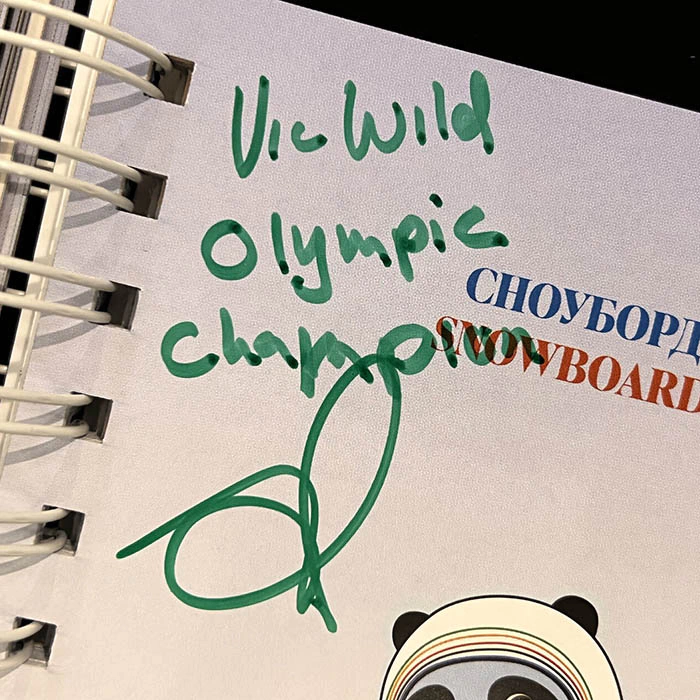 Vic Wild
Olympic
Champion
СНОУБОРД
SNOWBOARD